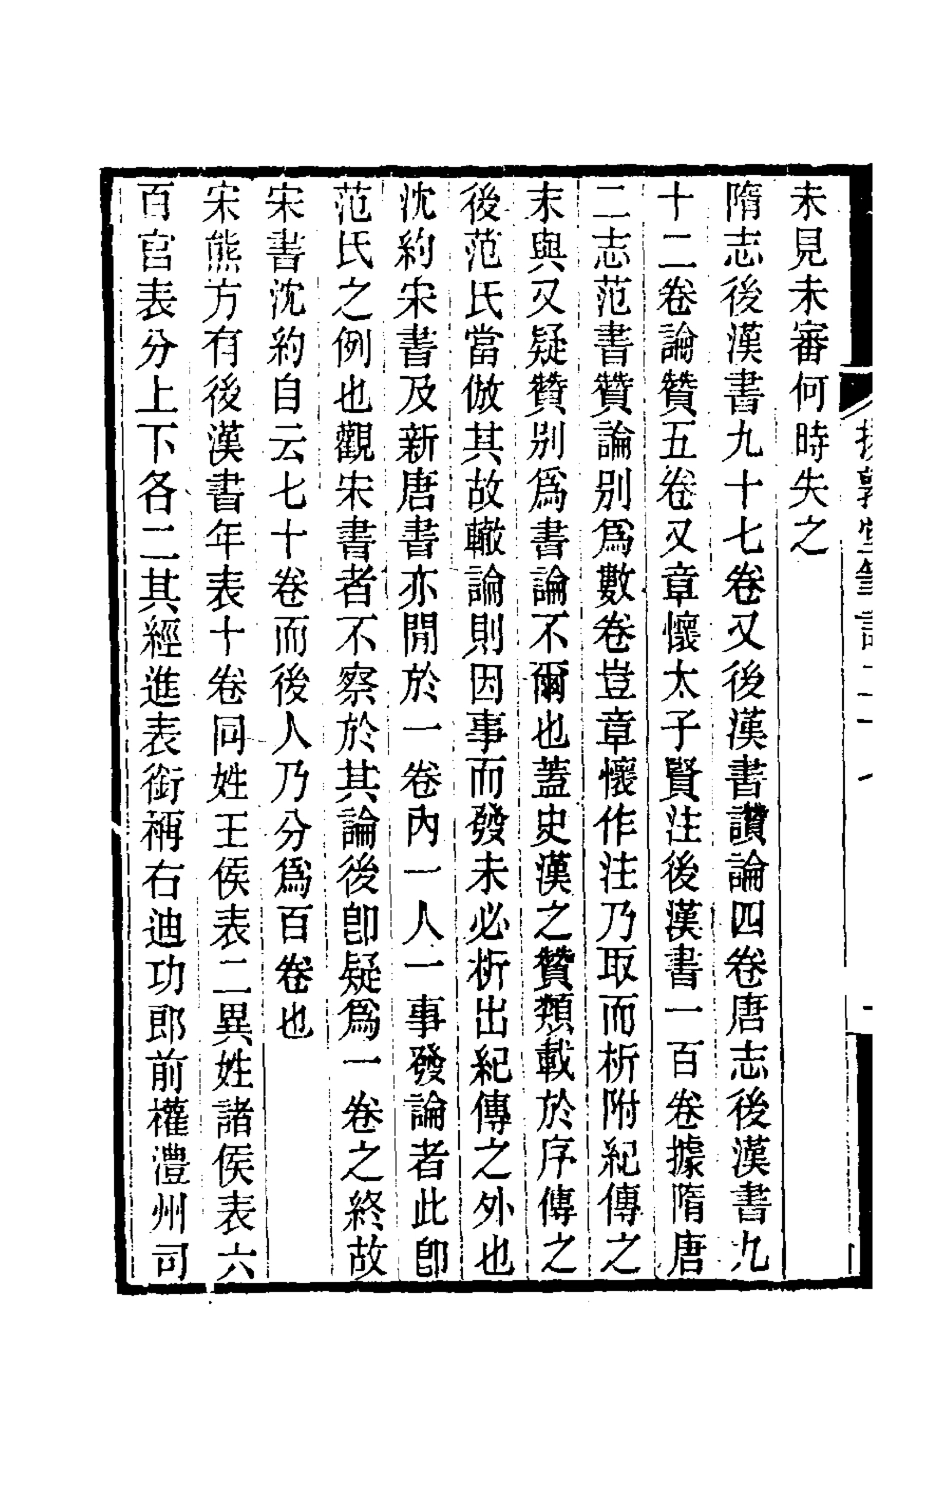 未見未審何時失之
隋志後漢書九十七卷又後漢書讚論四卷唐志後漢書九
十二卷論贊五卷又章懷太子賢注後漢書一百卷據隋唐
二志范書贊論別爲數卷豈章懷作注乃取而析附紀傳之
末與又疑贊別爲書論不爾也蓋史漢之贊類載於序傳之
後范氏當倣其故轍論則因事而發未必析出紀傳之外也
沈約宋書及新唐書亦閒於一卷內一人一事發論者此卽
范氏之例也觀宋書者不察於其論後卽疑爲一卷之終故
宋書沈約自云七十卷而後人乃分爲百卷也
宋熊方有後漢書年表十卷同姓王侯表二異姓諸侯表六
百官表分上下各二其經進表銜稱右迪功郎前權澧州司